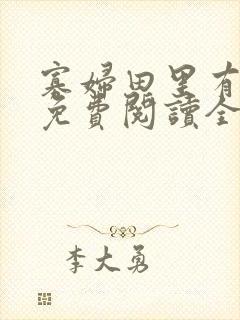 寡婦田里有
免費閱讀全
李大勇